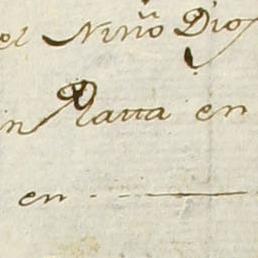 el Niño Dios
en Platta en
en